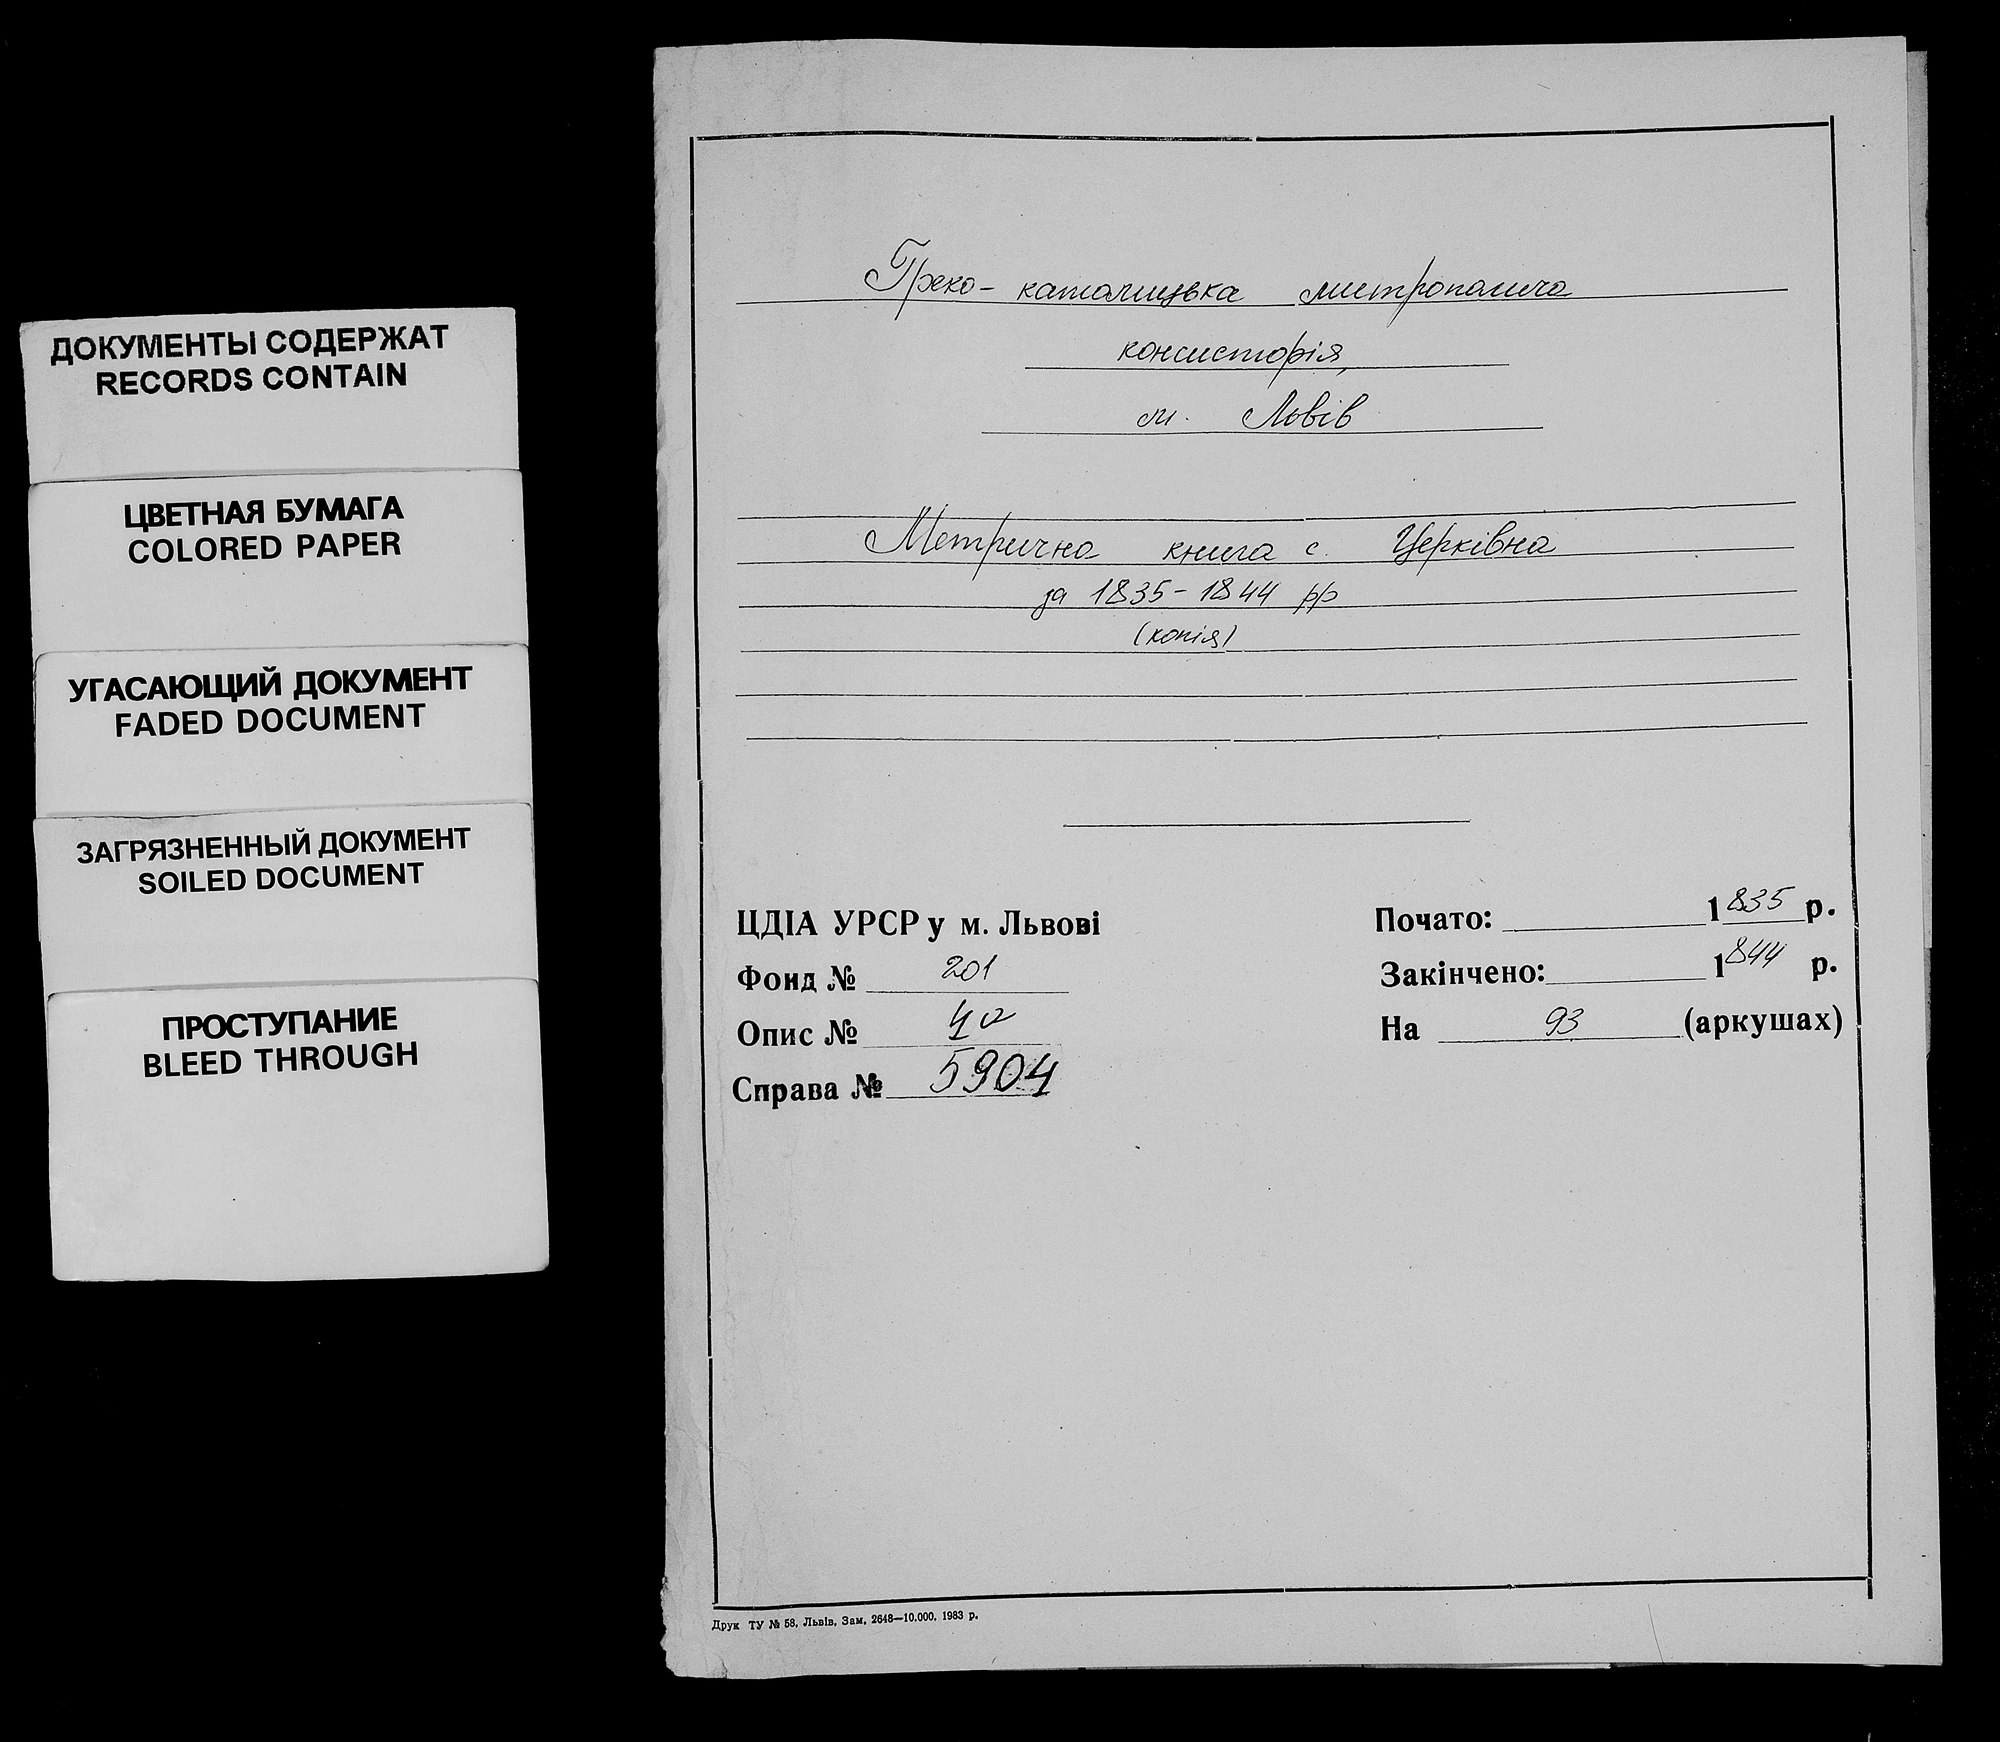 ДОКУМЕНТЫ СОДЕРЖАТ
RECORDS CONTAIN
ЦВЕТНАЯ БУМАГА
COLORED PAPER
УГАСАЮЩИЙ ДОКУМЕНТ
FADED DOCUMENT
ЗАГРЯЗНЕННЫЙ ДОКУМЕНТ
SOILED DOCUMENT
ПРОСТУПАНИЕ
BLEED THROUGH
Греко-католицька митрополича
консисторія,
м. Львів
Метрична книга с. Церківна
за 1835-1844 рр
(копія)
ЦДІА УРСР у м. Львові
Фонд № 201
Опис №
Справа № 5904
Почато: 1835 р.
Закінчено: 1844 р.
На 93 (аркушах)
Друк ТУ № 58. Львів. Зам. 2648—10.000. 1983 р.